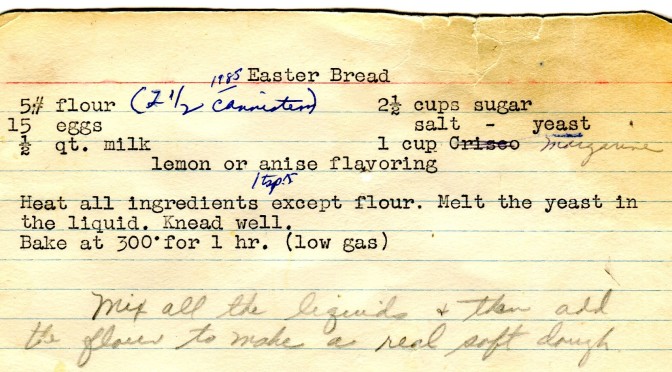 1985 Easter Bread
5# flour (2 1/2 cannisters) 2½ cups sugar
15 eggs salt - yeast
½ qt. milk 1 cup Crisco Margarine
lemon or anise flavoring
1 tsp.
Heat all ingredients except flour. Melt the yeast in
the liquid. Knead well.
Bake at 300° for 1 hr. (low gas)
Mix all the liquids & then add
the flour to make a real soft dough